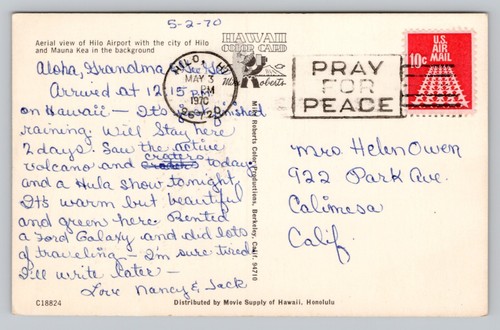 5-2-70
Aerial view of Hilo Airport with the city of Hilo
and Mauna Kea in the background
HAWAII
COLOR CARD
Mike Roberts
HILO, HI
MAY 3
PM
1970
96720
PRAY
FOR
PEACE
U.S.
AIR
MAIL
10c
Aloha, Grandma
Arrived at 12:15 PM
on Hawaii — It's finished
raining. Will stay here
2 days. Saw the active
craters
volcano and today
and a Hula show tonight
It's warm but beautiful
and green here. Rented
a Ford Galaxy and did lots
of traveling — I'm sure tired
I'll write later —
Love Nancy & Jack
Mrs Helen Owen
922 Park Ave.
Calimesa
Calif.
Mike Roberts Color Productions, Berkeley, Calif. 94710
C18824
Distributed by Movie Supply of Hawaii, Honolulu